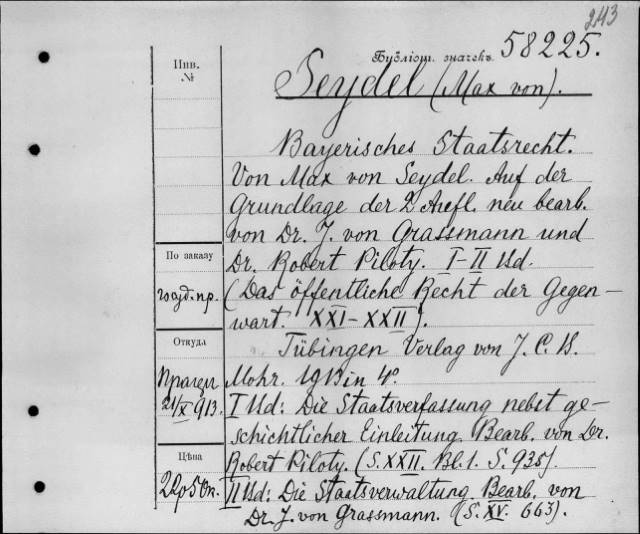 243
Бубліот. значекъ 58225.
Инв.
№
Seydel (Max von).
Bayerisches Staatsrecht.
Von Max von Seydel. Auf der
Grundlage der 2 Aufl. neu bearb.
von Dr. J. von Grassmann und
Dr. Robert Piloty. I–II Bd.
(Das öffentliche Recht der Gegen-
wart. XXI–XXII).
По заказу
госуд. пр.
Откуда
21/X 913.
Цѣна
22р50к.
Tübingen Verlag von J. C. B.
Mohr. 1913 in 4°
I Bd: Die Staatsverfassung nebst ge-
schichtlicher Einleitung. Bearb. von Dr.
Robert Piloty. (S. XXII. Bl. 1. S. 935).
II Bd: Die Staatsverwaltung. Bearb. von
Dr. J. von Grassmann. (S. XV. 663).